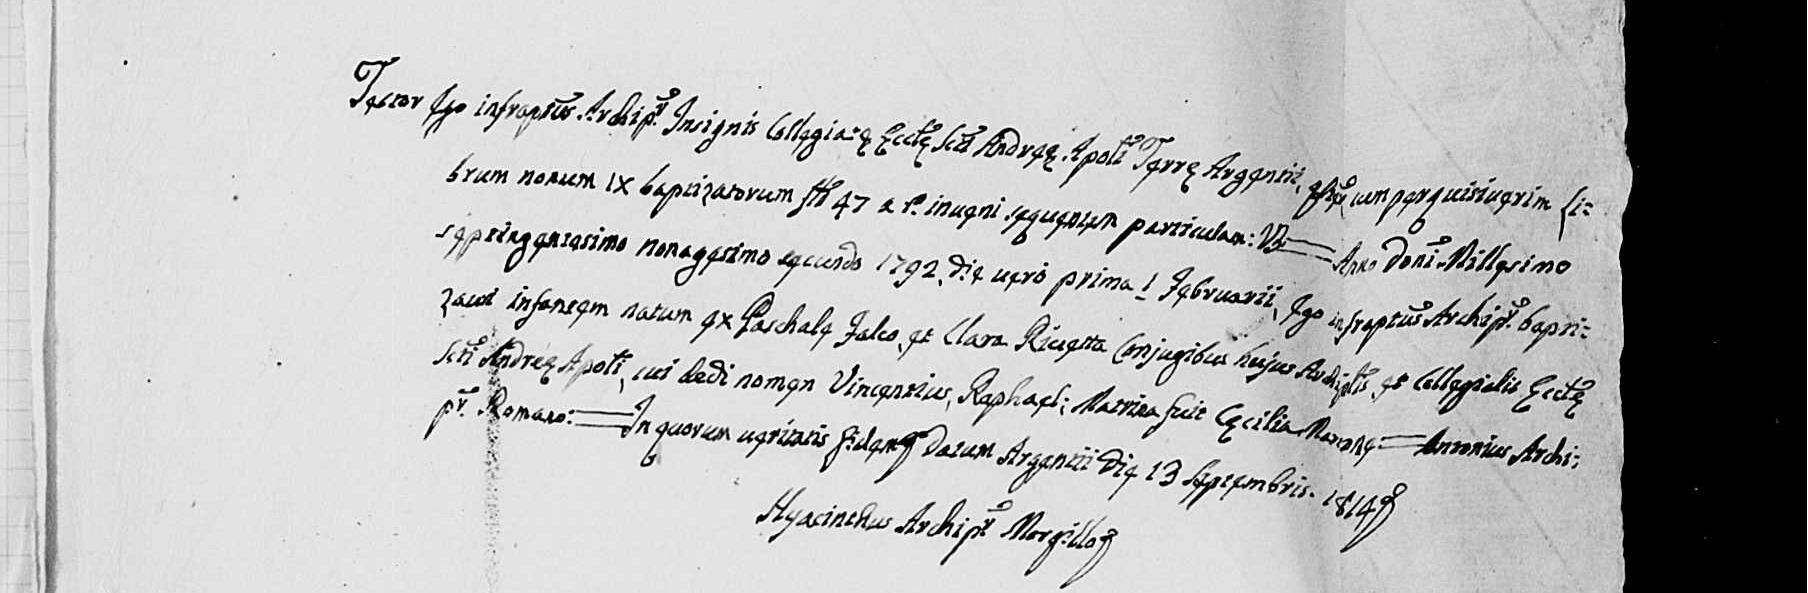 Testor Ego infraptus Archipr. Insignis Collegiatę Ecctę Scti Andreę Apoti Terrę Argentii, cum perquisiverim li=
brum nonum IX baptizatorum fol. 47 a t. inveni sequentem particulam: Vz = Anno Doni Millesimo
septingentesimo nonagesimo secundo 1792, die verò prima 1 Februarii, Ego infraptus Archipr. bapti=
zavi infantem natum ex Paschale Falco, et Clara Ricotta Conjugibus hujus Archiplis, et Collegialis Ecctę
Scti Andreę Apoti, cui dedi nomen Vincentius, Raphael; Matrina fuit Cęcilia = Antonius Archi=
pr. Romano: = In quorum veritatis fidem Datum Argentii die 13 Septembris 1814
Hyacinthus Archipr. Morgillo